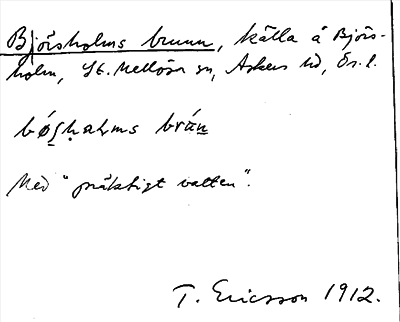 Björsholms brunn, källa å Björs-
holm, St. Mellösa sn, Askers hd, Ör. l.
bǿʂhaɭms brán
Med "präktigt vatten".
T. Ericsson 1912.